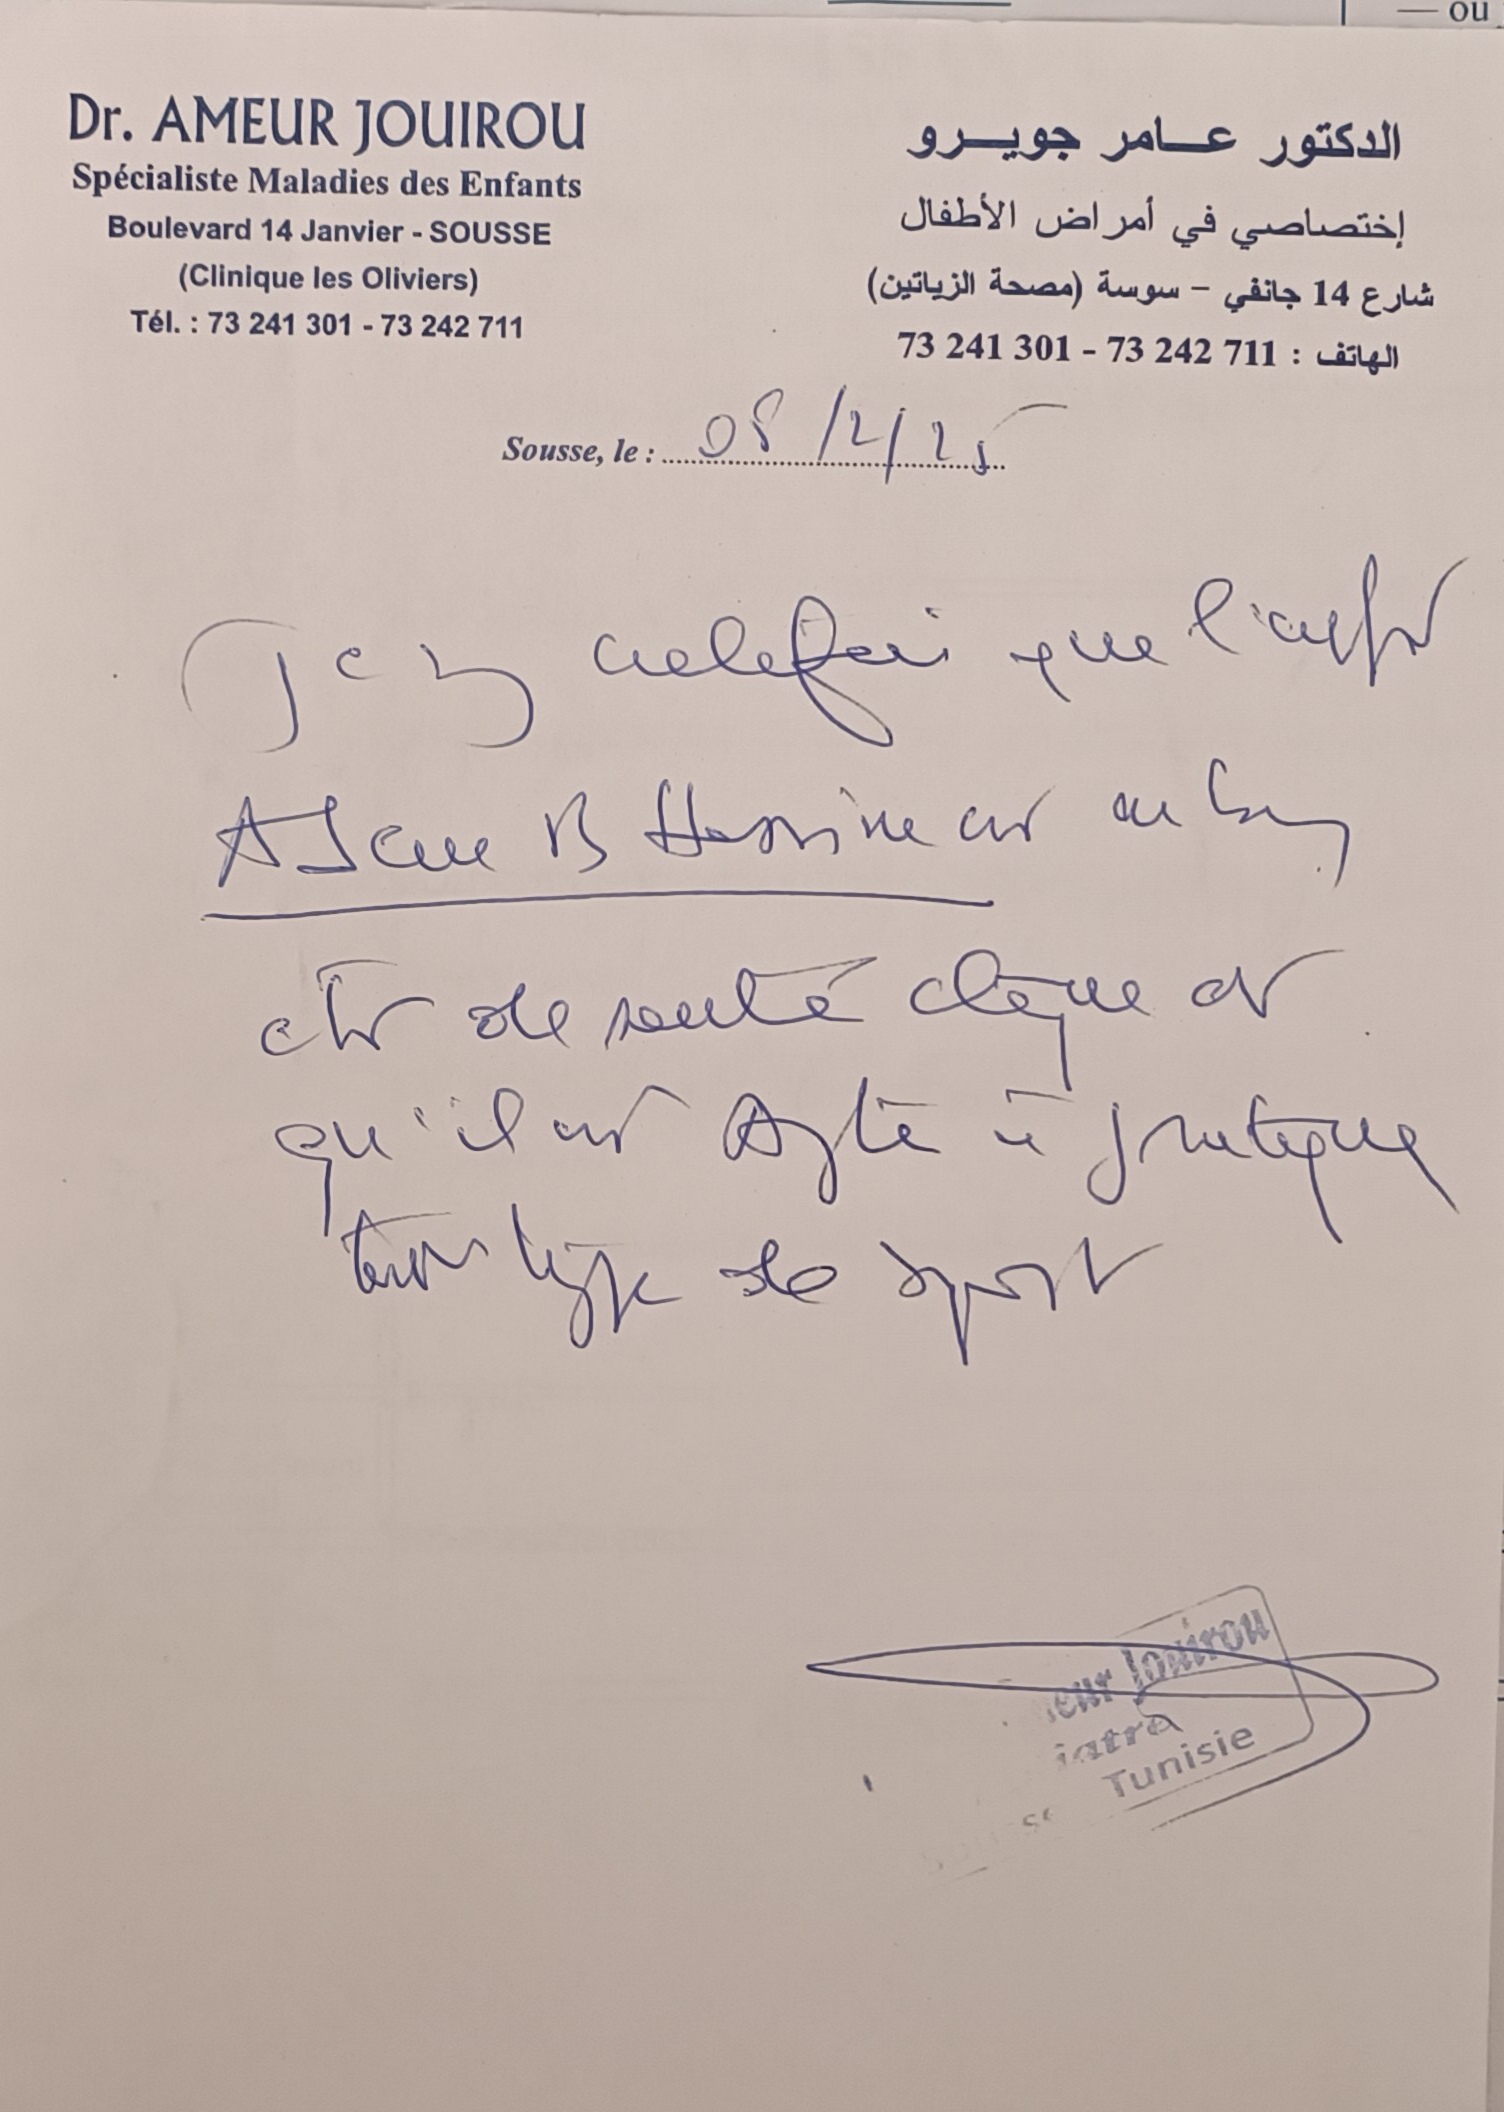 — ou
Dr. AMEUR JOUIROU
Spécialiste Maladies des Enfants
Boulevard 14 Janvier - SOUSSE
(Clinique les Oliviers)
Tél. : 73 241 301 - 73 242 711
الدكتور عــامر جويــرو
إختصاصي في أمراض الأطفال
شارع 14 جانفي – سوسة (مصحة الزياتين)
الهاتف : 73 241 301 - 73 242 711
Sousse, le : 08/2/25
que l'
B Hassine est en bon
état de santé et
qu'il est Apte à pratiquer
tout type de sport
Jouirou
Tunisie